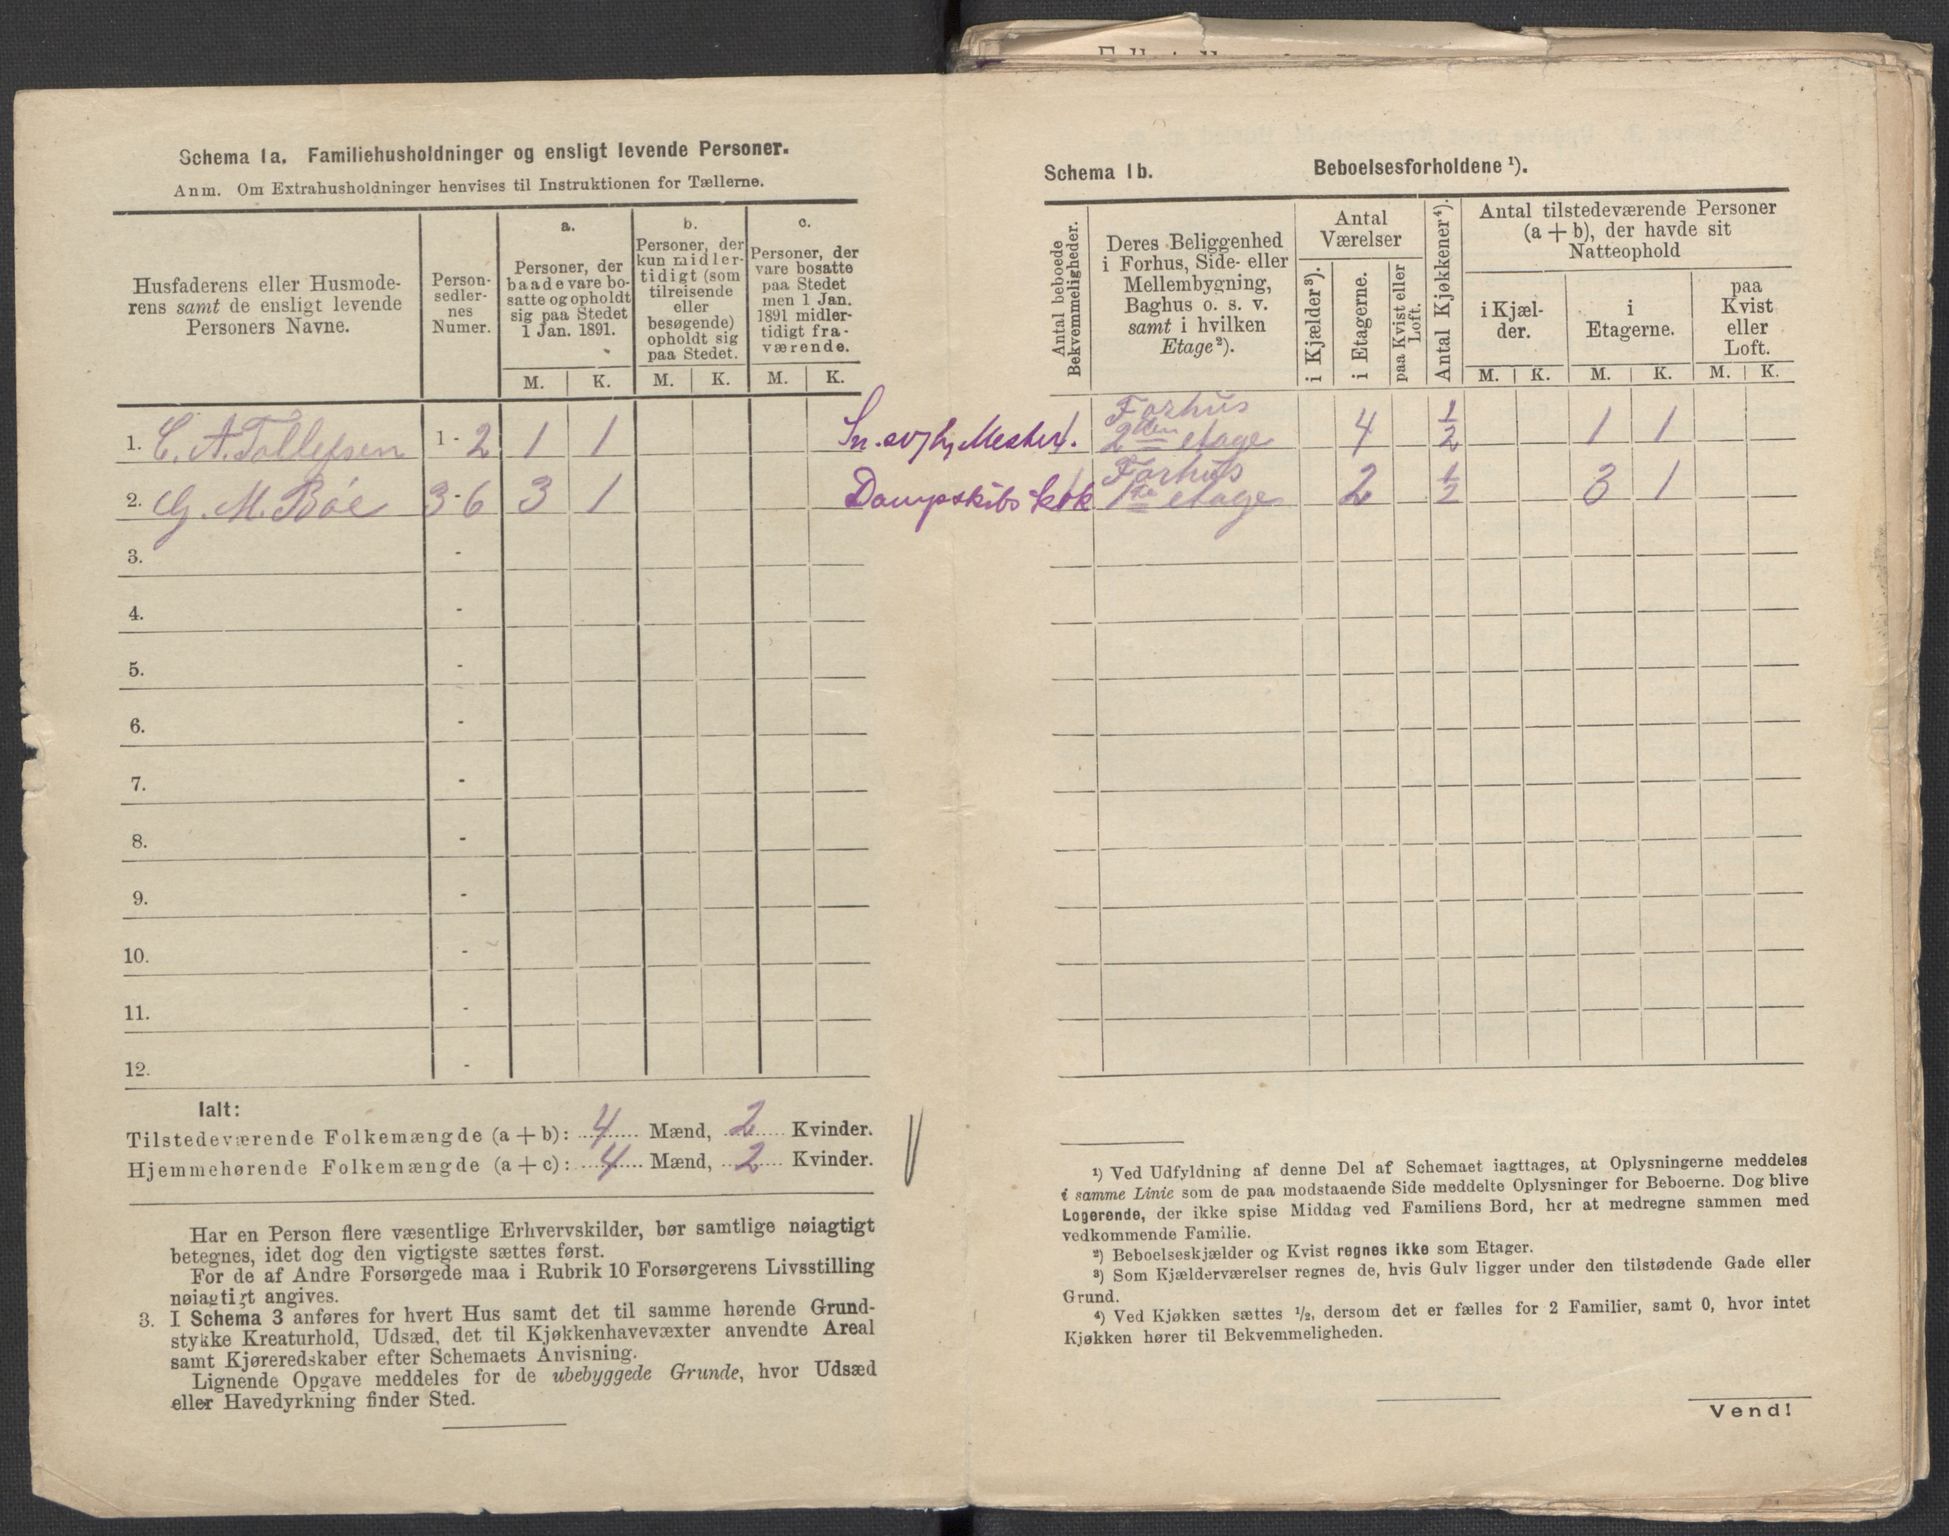 Schema 1a. Familiehusholdninger og ensligt levende Personer.
Anm. Om Extrahusholdninger henvises til Instruktionen for Tællerne.
Husfaderens eller Husmoderens samt de ensligt levende Personers Navne.
Person-sedlernes Numer.
a. Personer, der baade vare bosatte og opholdt sig paa Stedet 1 Jan. 1891.
b. Personer, der kun midlertidigt (som tilreisende eller besøgende) opholdt sig paa Stedet.
c. Personer, der vare bosatte paa Stedet men 1 Jan. 1891 midlertidigt fraværende.
M. K. M. K. M. K.
1. C. A. Tollefsen 1 - 2 1 1
2. G. M. Bøe 3 - 6 3 1 Dampskibskok
3. -
4. -
5. -
6. -
7. -
8. -
9. -
10. -
11. -
12. -
Ialt:
Tilstedeværende Folkemængde (a + b): 4 Mænd, 2 Kvinder.
Hjemmehørende Folkemængde (a + c): 4 Mænd, 2 Kvinder.
Har en Person flere væsentlige Erhvervskilder, bør samtlige nøiagtigt
betegnes, idet dog den vigtigste sættes først.
For de af Andre Forsørgede maa i Rubrik 10 Forsørgerens Livsstilling
nøiagtigt angives.
3. I Schema 3 anføres for hvert Hus samt det til samme hørende Grund-
stykke Kreaturhold, Udsæd, det til Kjøkkenhavevæxter anvendte Areal
samt Kjøreredskaber efter Schemaets Anvisning.
Lignende Opgave meddeles for de ubebyggede Grunde, hvor Udsæd
eller Havedyrkning finder Sted.
Schema 1b. Beboelsesforholdene ¹).
Antal beboede Bekvemmeligheder.
Deres Beliggenhed i Forhus, Side- eller Mellembygning, Baghus o. s. v. samt i hvilken Etage ²).
Antal Værelser
i Kjælder ³).
i Etagerne.
paa Kvist eller Loft.
Antal Kjøkkener ⁴).
Antal tilstedeværende Personer (a + b), der havde sit Natteophold
i Kjælder.
i Etagerne.
paa Kvist eller Loft.
M. K. M. K. M. K.
1. Forhus 2den etage 4 ½ 1 1
1 Forhus 1ste etage 2 ½ 3 1
¹) Ved Udfyldning af denne Del af Schemaet iagttages, at Oplysningerne meddeles
i samme Linie som de paa modstaaende Side meddelte Oplysninger for Beboerne. Dog blive
Logerende, der ikke spise Middag ved Familiens Bord, her at medregne sammen med
vedkommende Familie.
²) Beboelseskjælder og Kvist regnes ikke som Etager.
³) Som Kjælderværelser regnes de, hvis Gulv ligger under den tilstødende Gade eller
Grund.
⁴) Ved Kjøkken sættes ½, dersom det er fælles for 2 Familier, samt 0, hvor intet
Kjøkken hører til Bekvemmeligheden.
Vend!